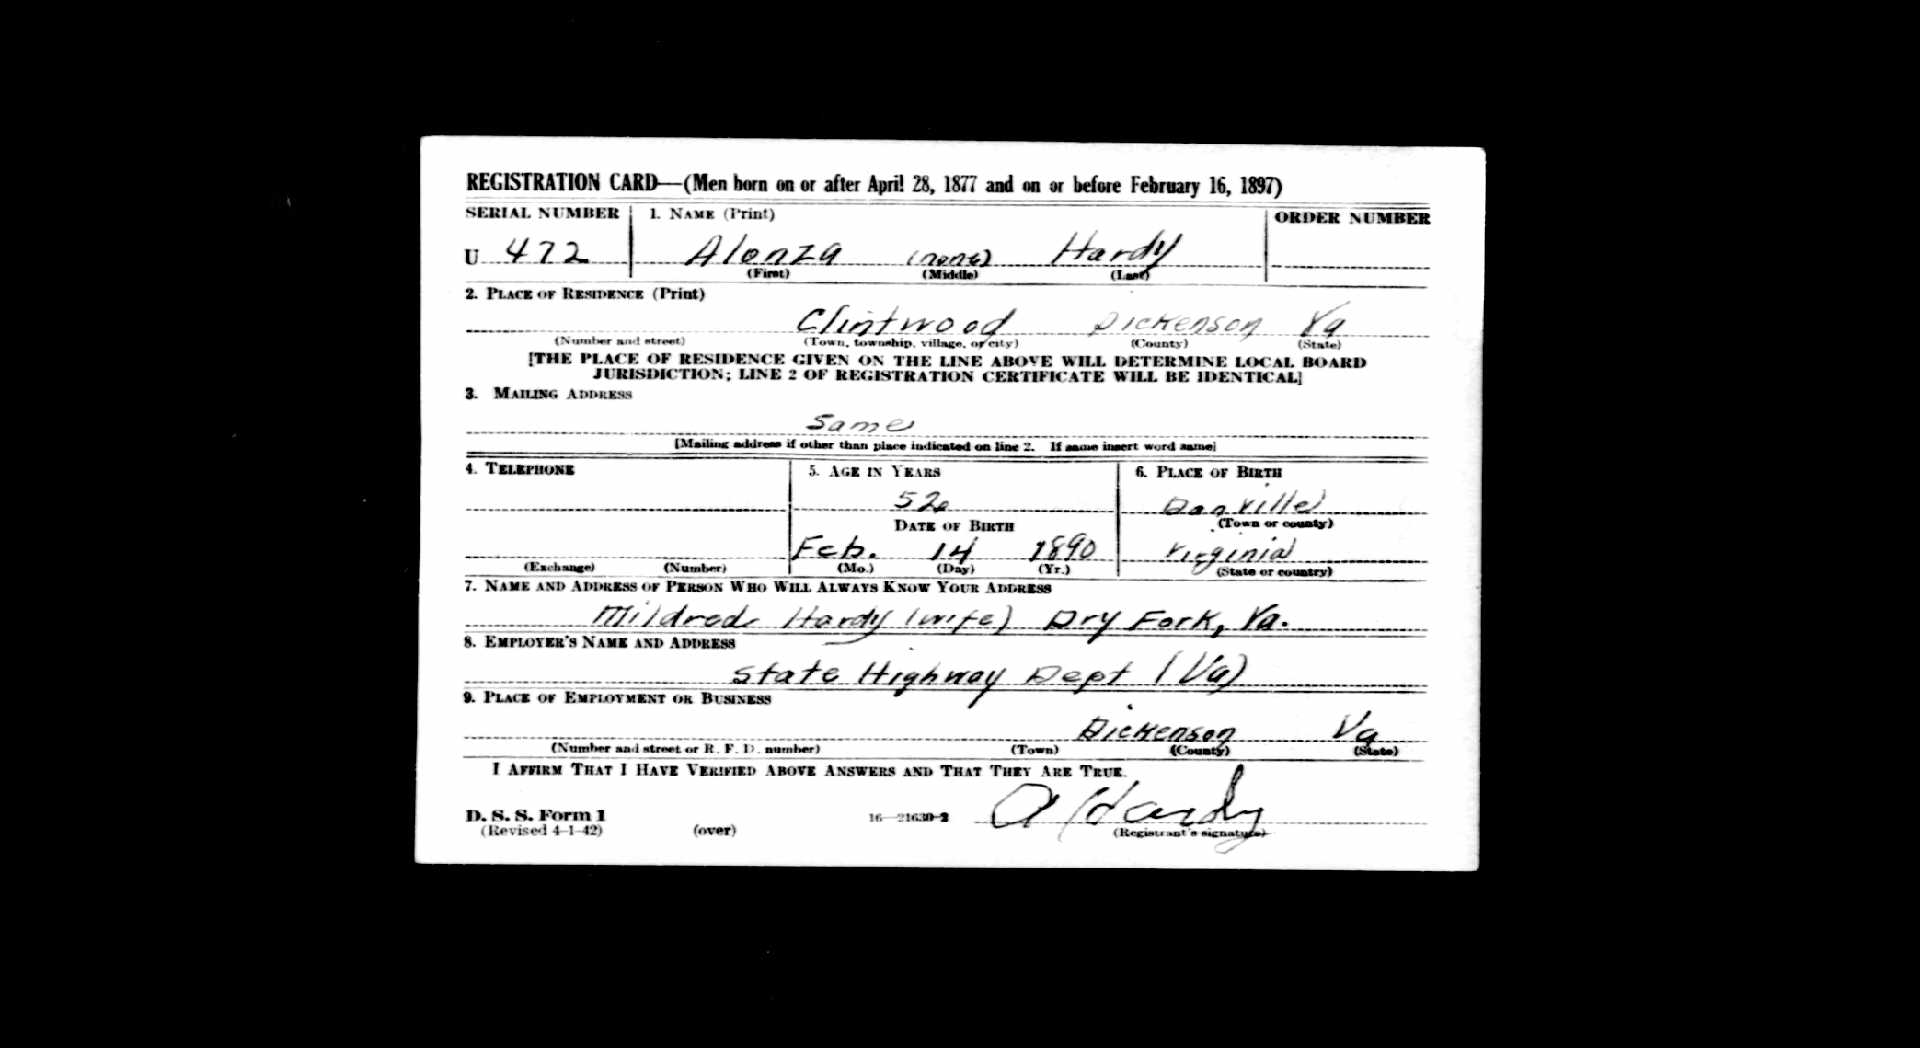 REGISTRATION CARD—(Men born on or after April 28, 1877 and on or before February 16, 1897)
SERIAL NUMBER 1. NAME (Print) ORDER NUMBER
U 472 Alonza (none) Hardy
(First) (Middle) (Last)
2. PLACE OF RESIDENCE (Print)
Clintwood Dickenson Va
(Number and street) (Town, township, village, or city) (County) (State)
[THE PLACE OF RESIDENCE GIVEN ON THE LINE ABOVE WILL DETERMINE LOCAL BOARD
JURISDICTION; LINE 2 OF REGISTRATION CERTIFICATE WILL BE IDENTICAL]
3. MAILING ADDRESS
Same
[Mailing address if other than place indicated on line 2. If same insert word same]
4. TELEPHONE 5. AGE IN YEARS 6. PLACE OF BIRTH
52 Danville
DATE OF BIRTH (Town or county)
Feb. 14 1890 Virginia
(Exchange) (Number) (Mo.) (Day) (Yr.) (State or country)
7. NAME AND ADDRESS OF PERSON WHO WILL ALWAYS KNOW YOUR ADDRESS
Mildred Hardy (wife) Dry Fork, Va.
8. EMPLOYER'S NAME AND ADDRESS
State Highway Dept (Va)
9. PLACE OF EMPLOYMENT OR BUSINESS
Dickenson Va
(Number and street or R. F. D. number) (Town) (County) (State)
I AFFIRM THAT I HAVE VERIFIED ABOVE ANSWERS AND THAT THEY ARE TRUE.
D. S. S. Form 1 16—21630-2 A Hardy
(Revised 4-1-42) (over) (Registrant's signature)